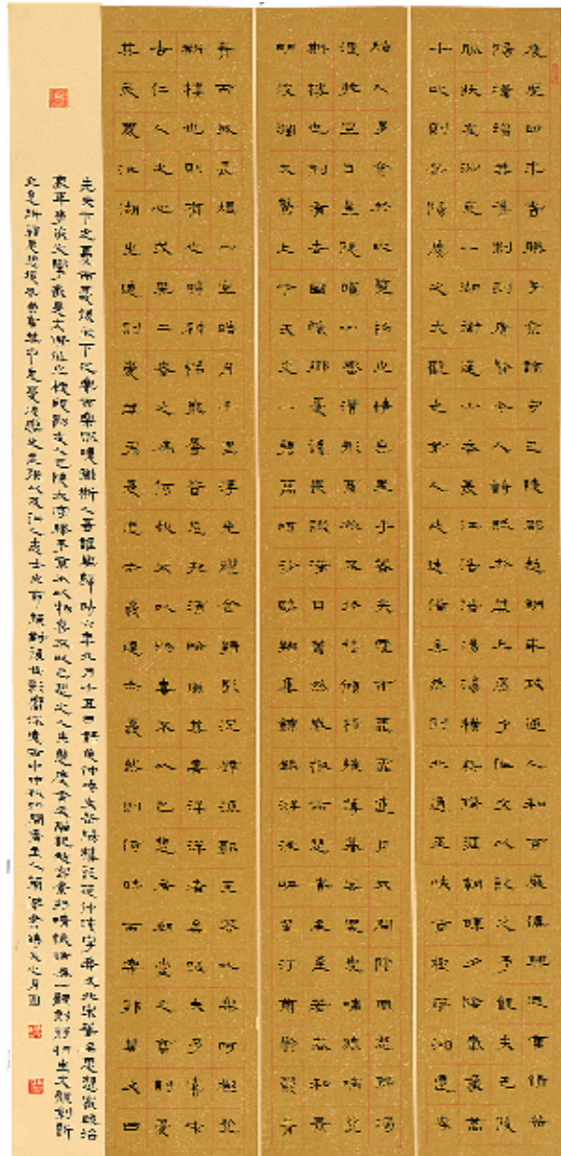 慶歷四年春滕子京謫守巴陵郡越明年政通人和百廢俱興乃重修岳
陽樓增其舊制刻唐賢今人詩賦於其上屬予作文以記之予觀夫巴陵
勝狀在洞庭一湖銜遠山吞長江浩浩湯湯橫無際涯朝暉夕陰氣象萬
千此則岳陽樓之大觀也前人之述備矣然則北通巫峽南極瀟湘遷客
騷人多會於此覽物之情得異乎若夫霪雨霏霏連月不開陰風怒號濁
浪排空日星隱曜山岳潛形商旅不行檣傾楫摧薄暮冥冥虎嘯猿啼登
斯樓也則有去國懷鄉憂讒畏譏滿目蕭然感極而悲者矣至若春和景
明波瀾不驚上下天光一碧萬頃沙鷗翔集錦鱗游泳岸芷汀蘭郁郁青
青而或長煙一空皓月千里浮光躍金靜影沉璧漁歌互答此樂何極登
斯樓也則有心曠神怡寵辱皆忘把酒臨風其喜洋洋者矣嗟夫予嘗求
古仁人之心或異二者之為何哉不以物喜不以己悲居廟堂之高則憂
其民處江湖之遠則憂其君是進亦憂退亦憂然則何時而樂耶其必曰
先天下之憂而憂後天下之樂而樂歟噫微斯人吾誰與歸時六年九月十五日